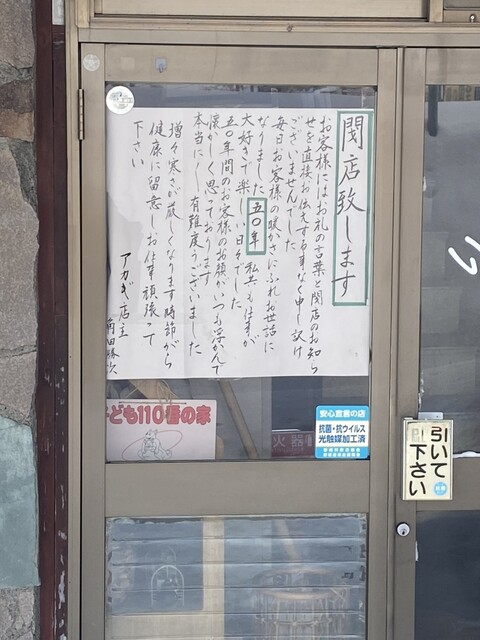 閉店致します
お客様にはお礼の言葉と閉店のお知ら
せを直接お伝えする事なく申し訳け
ございませんでした
毎日お客様の暖かさにふれお世話に
なりました 五〇年 私共も仕事が
大好きで楽しい日々でした
五〇年間のお客様のお顔がいつも浮かんで
懐かしく思っております
本当に〳〵有難度うございました
増々寒さが厳しくなります時節がら
健康に留意しお仕事頑張って
下さい
アカギ店主
角田勝次
子ども110番の家
火器
安心宣言の店
抗菌・抗ウイルス
光触媒加工済
引いて
下さい